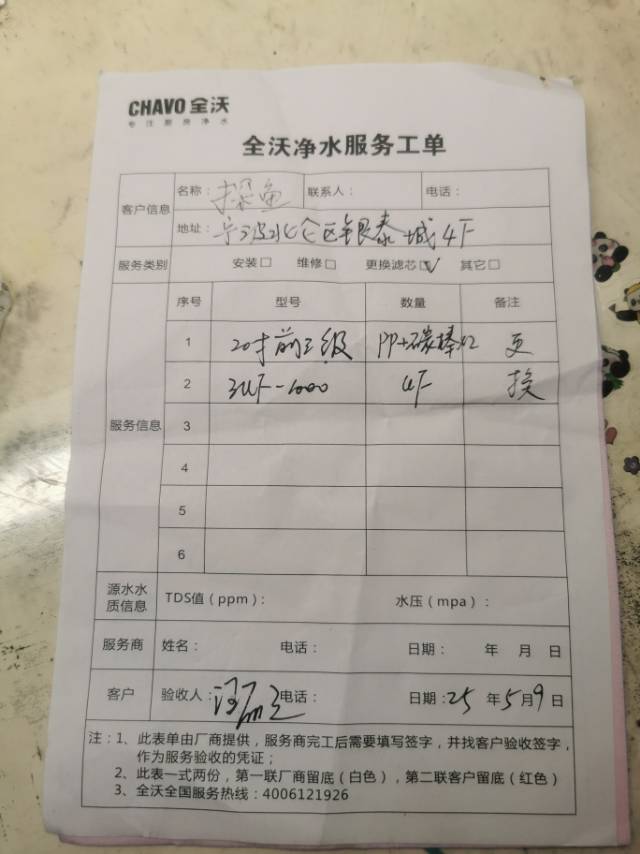 CHAVO 全沃
专注厨房净水
全沃净水服务工单
客户信息 名称: 探鱼 联系人: 电话:
地址: 宁波北仑区银泰城4F
服务类别 安装□ 维修□ 更换滤芯☑ 其它□
服务信息
序号 型号 数量 备注
1 20寸前三级 PP+碳棒x2 更
2 3UF-1000 4F 换
3
4
5
6
源水水质信息 TDS值(ppm): 水压(mpa):
服务商 姓名: 电话: 日期: 年 月 日
客户 验收人: 电话: 日期: 25年5月9日
注:1、此表单由厂商提供,服务商完工后需要填写签字,并找客户验收签字,
作为服务验收的凭证;
2、此表一式两份,第一联厂商留底(白色),第二联客户留底(红色)
3、全沃全国服务热线:4006121926